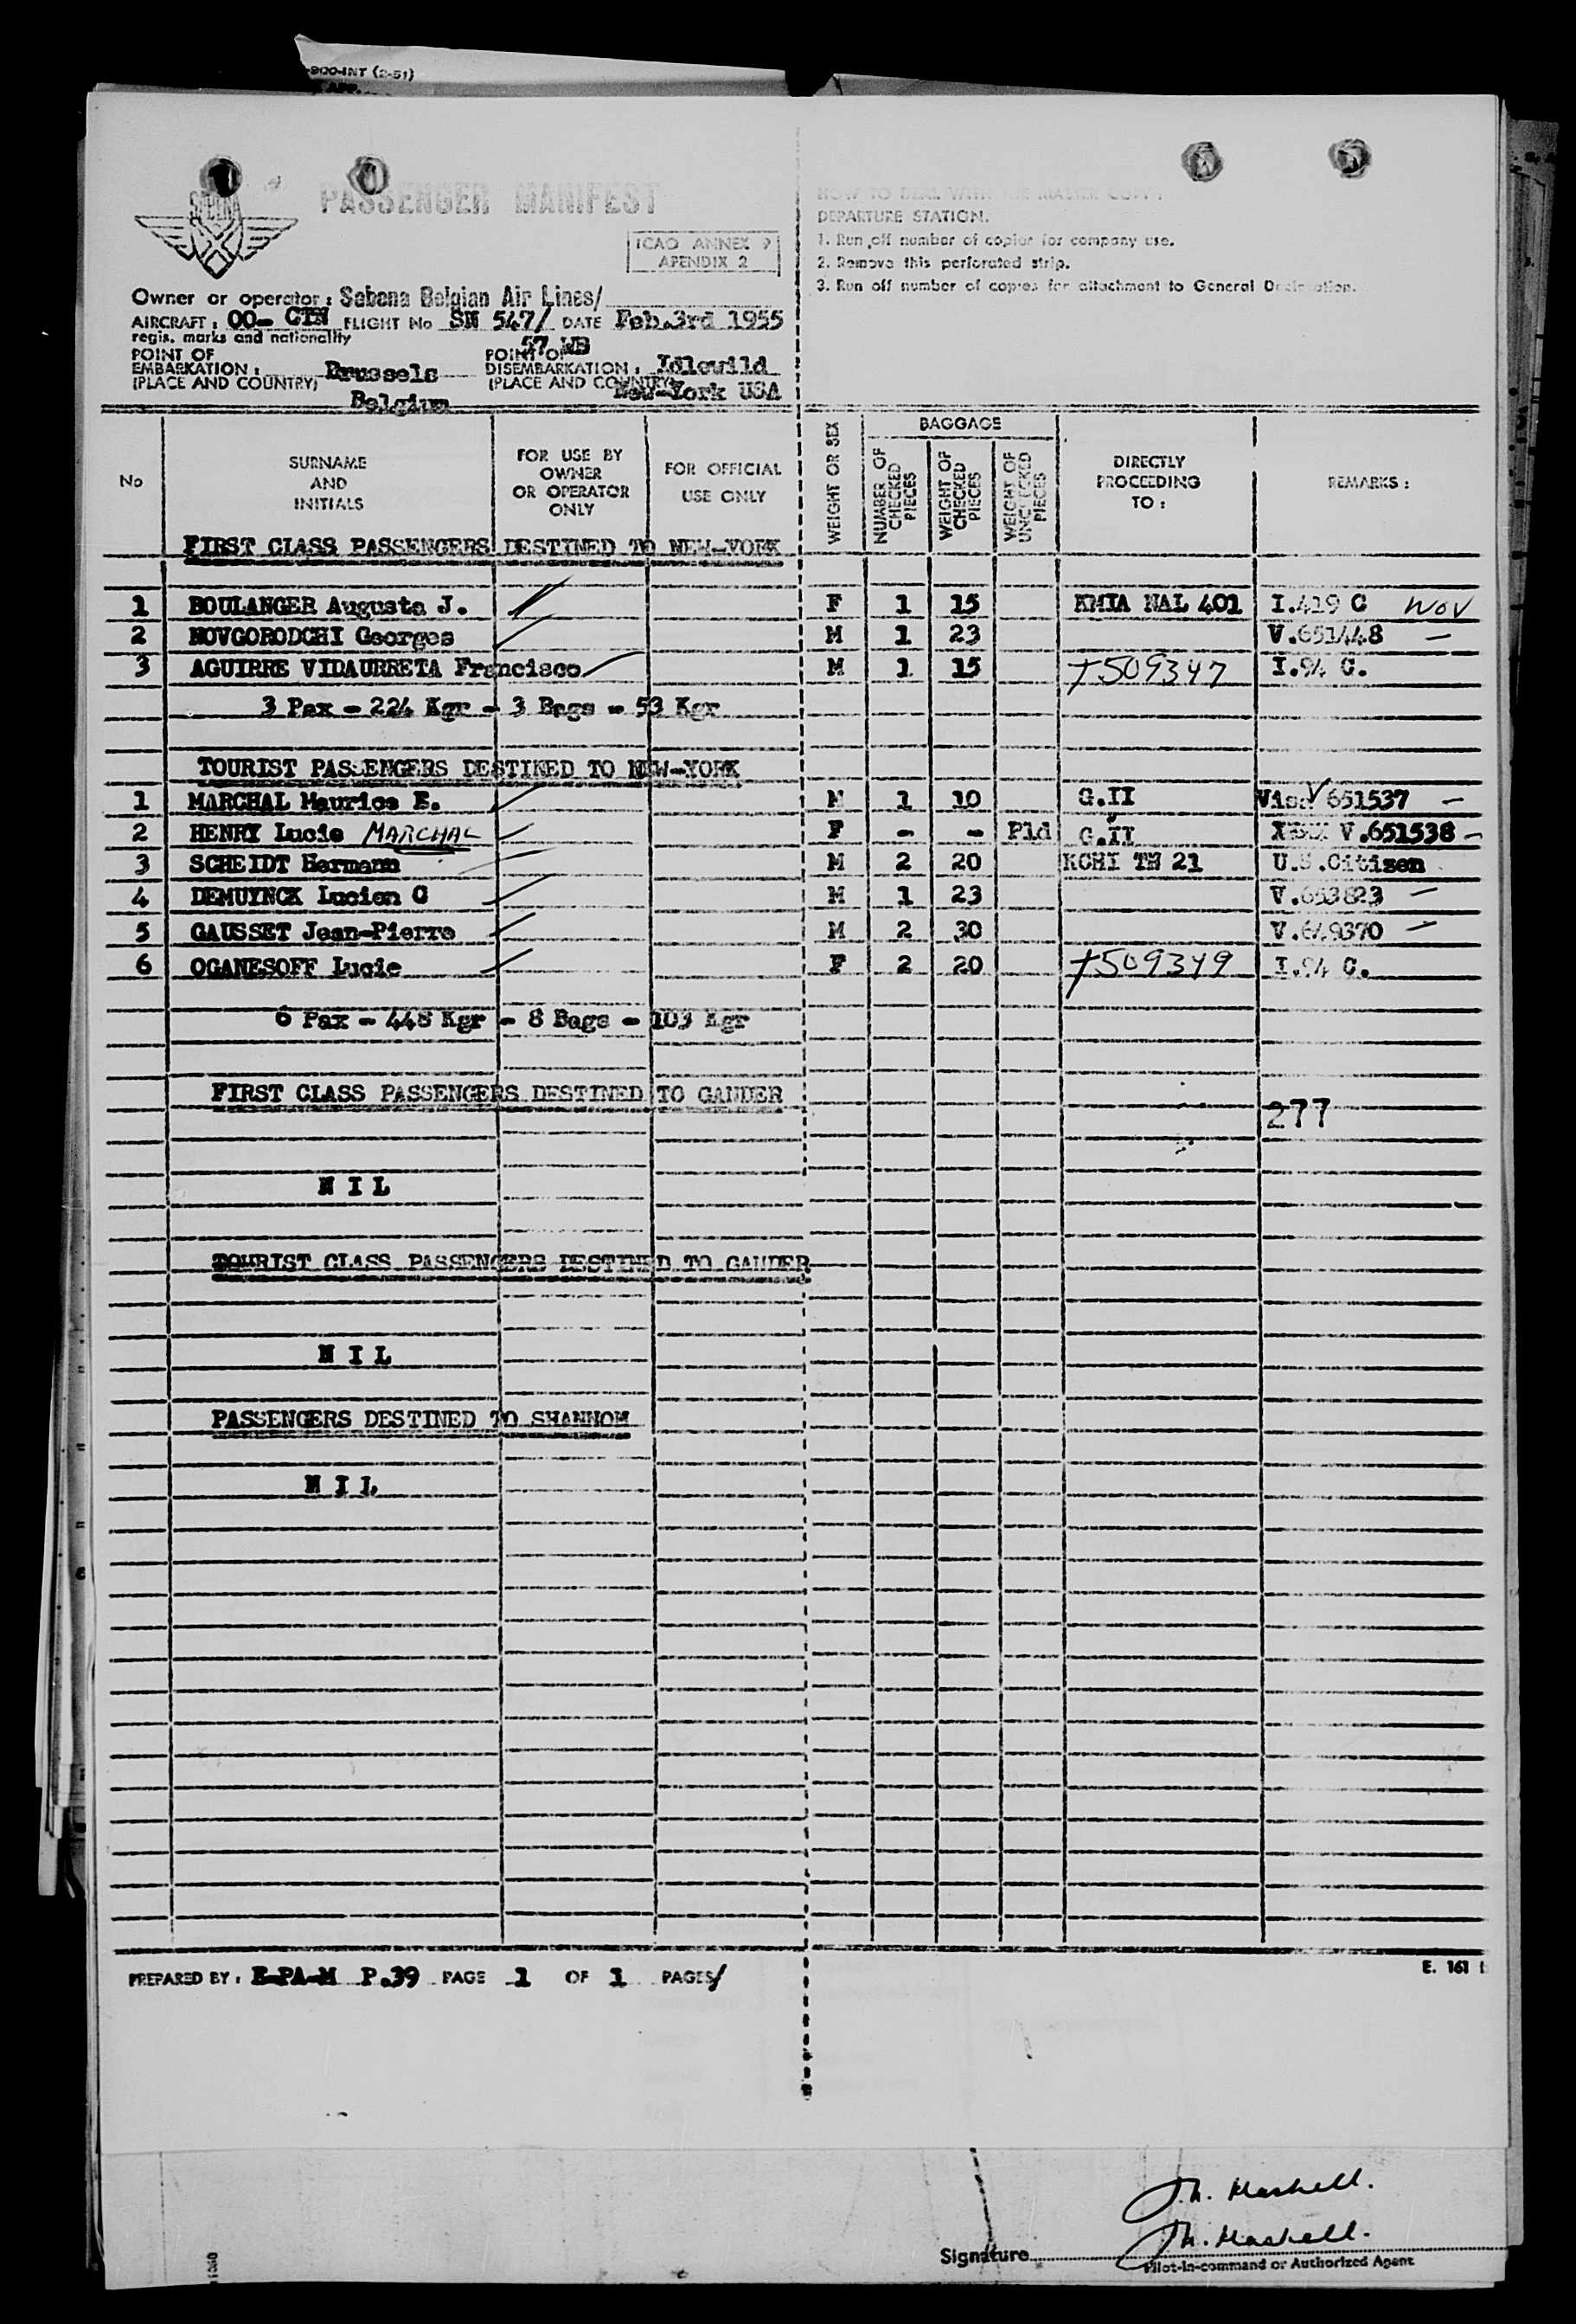 -900-INT (2-51)
SABENA
PASSENGER MANIFEST
ICAO ANNEX 9
APENDIX 2
HOW TO DEAL WITH THE MASTER COPY
DEPARTURE STATION.
1. Run off number of copies for company use.
2. Remove this perforated strip.
3. Run off number of copies for attachment to General Declaration.
Owner or operator : Sabena Belgian Air Lines/
AIRCRAFT : OO- CTN FLIGHT No SN 547/ DATE Feb.3rd 1955
regis. marks and nationality 57 WB
POINT OF EMBARKATION : (PLACE AND COUNTRY) Brussels Belgium
POINT OF DISEMBARKATION : (PLACE AND COUNTRY) Idlewild New-York USA
No
SURNAME AND INITIALS
FOR USE BY OWNER OR OPERATOR ONLY
FOR OFFICIAL USE ONLY
WEIGHT OR SEX
BAGGAGE
NUMBER OF CHECKED PIECES
WEIGHT OF CHECKED PIECES
WEIGHT OF UNCHECKED PIECES
DIRECTLY PROCEEDING TO :
REMARKS :
FIRST CLASS PASSENGERS DESTINED TO NEW-YORK
1 BOULANGER Augusta J. F 1 15 KMIA NAL 401 I.419 C WOV
2 NOVGORODCHI Georges M 1 23 V.651448 —
3 AGUIRRE VIDAURRETA Francisco M 1 15 T509347 I.94 C.
3 Pax - 224 Kgr - 3 Bags - 53 Kgr
TOURIST PASSENGERS DESTINED TO NEW-YORK
1 MARCHAL Maurice E. M 1 10 G.II Visa 651537 —
2 HENRY Lucie MARCHAL F - - Pld G.II V.651538 —
3 SCHEIDT Hermann M 2 20 KCHI TW 21 U.S.Citizen
4 DEMUYNCK Lucien G M 1 23 V.653823 —
5 GAUSSET Jean-Pierre M 2 30 V.649370 —
6 OGANESOFF Lucie F 2 20 T509349 I.94 C.
6 Pax - 448 Kgr - 8 Bags - 103 Kgr
FIRST CLASS PASSENGERS DESTINED TO GANDER
277
N I L
TOURIST CLASS PASSENGERS DESTINED TO GANDER
N I L
PASSENGERS DESTINED TO SHANNON
N I L
PREPARED BY : E-PA-M P.39 PAGE 1 OF 1 PAGES/
E. 161
Signature
Pilot-in-command or Authorized Agent